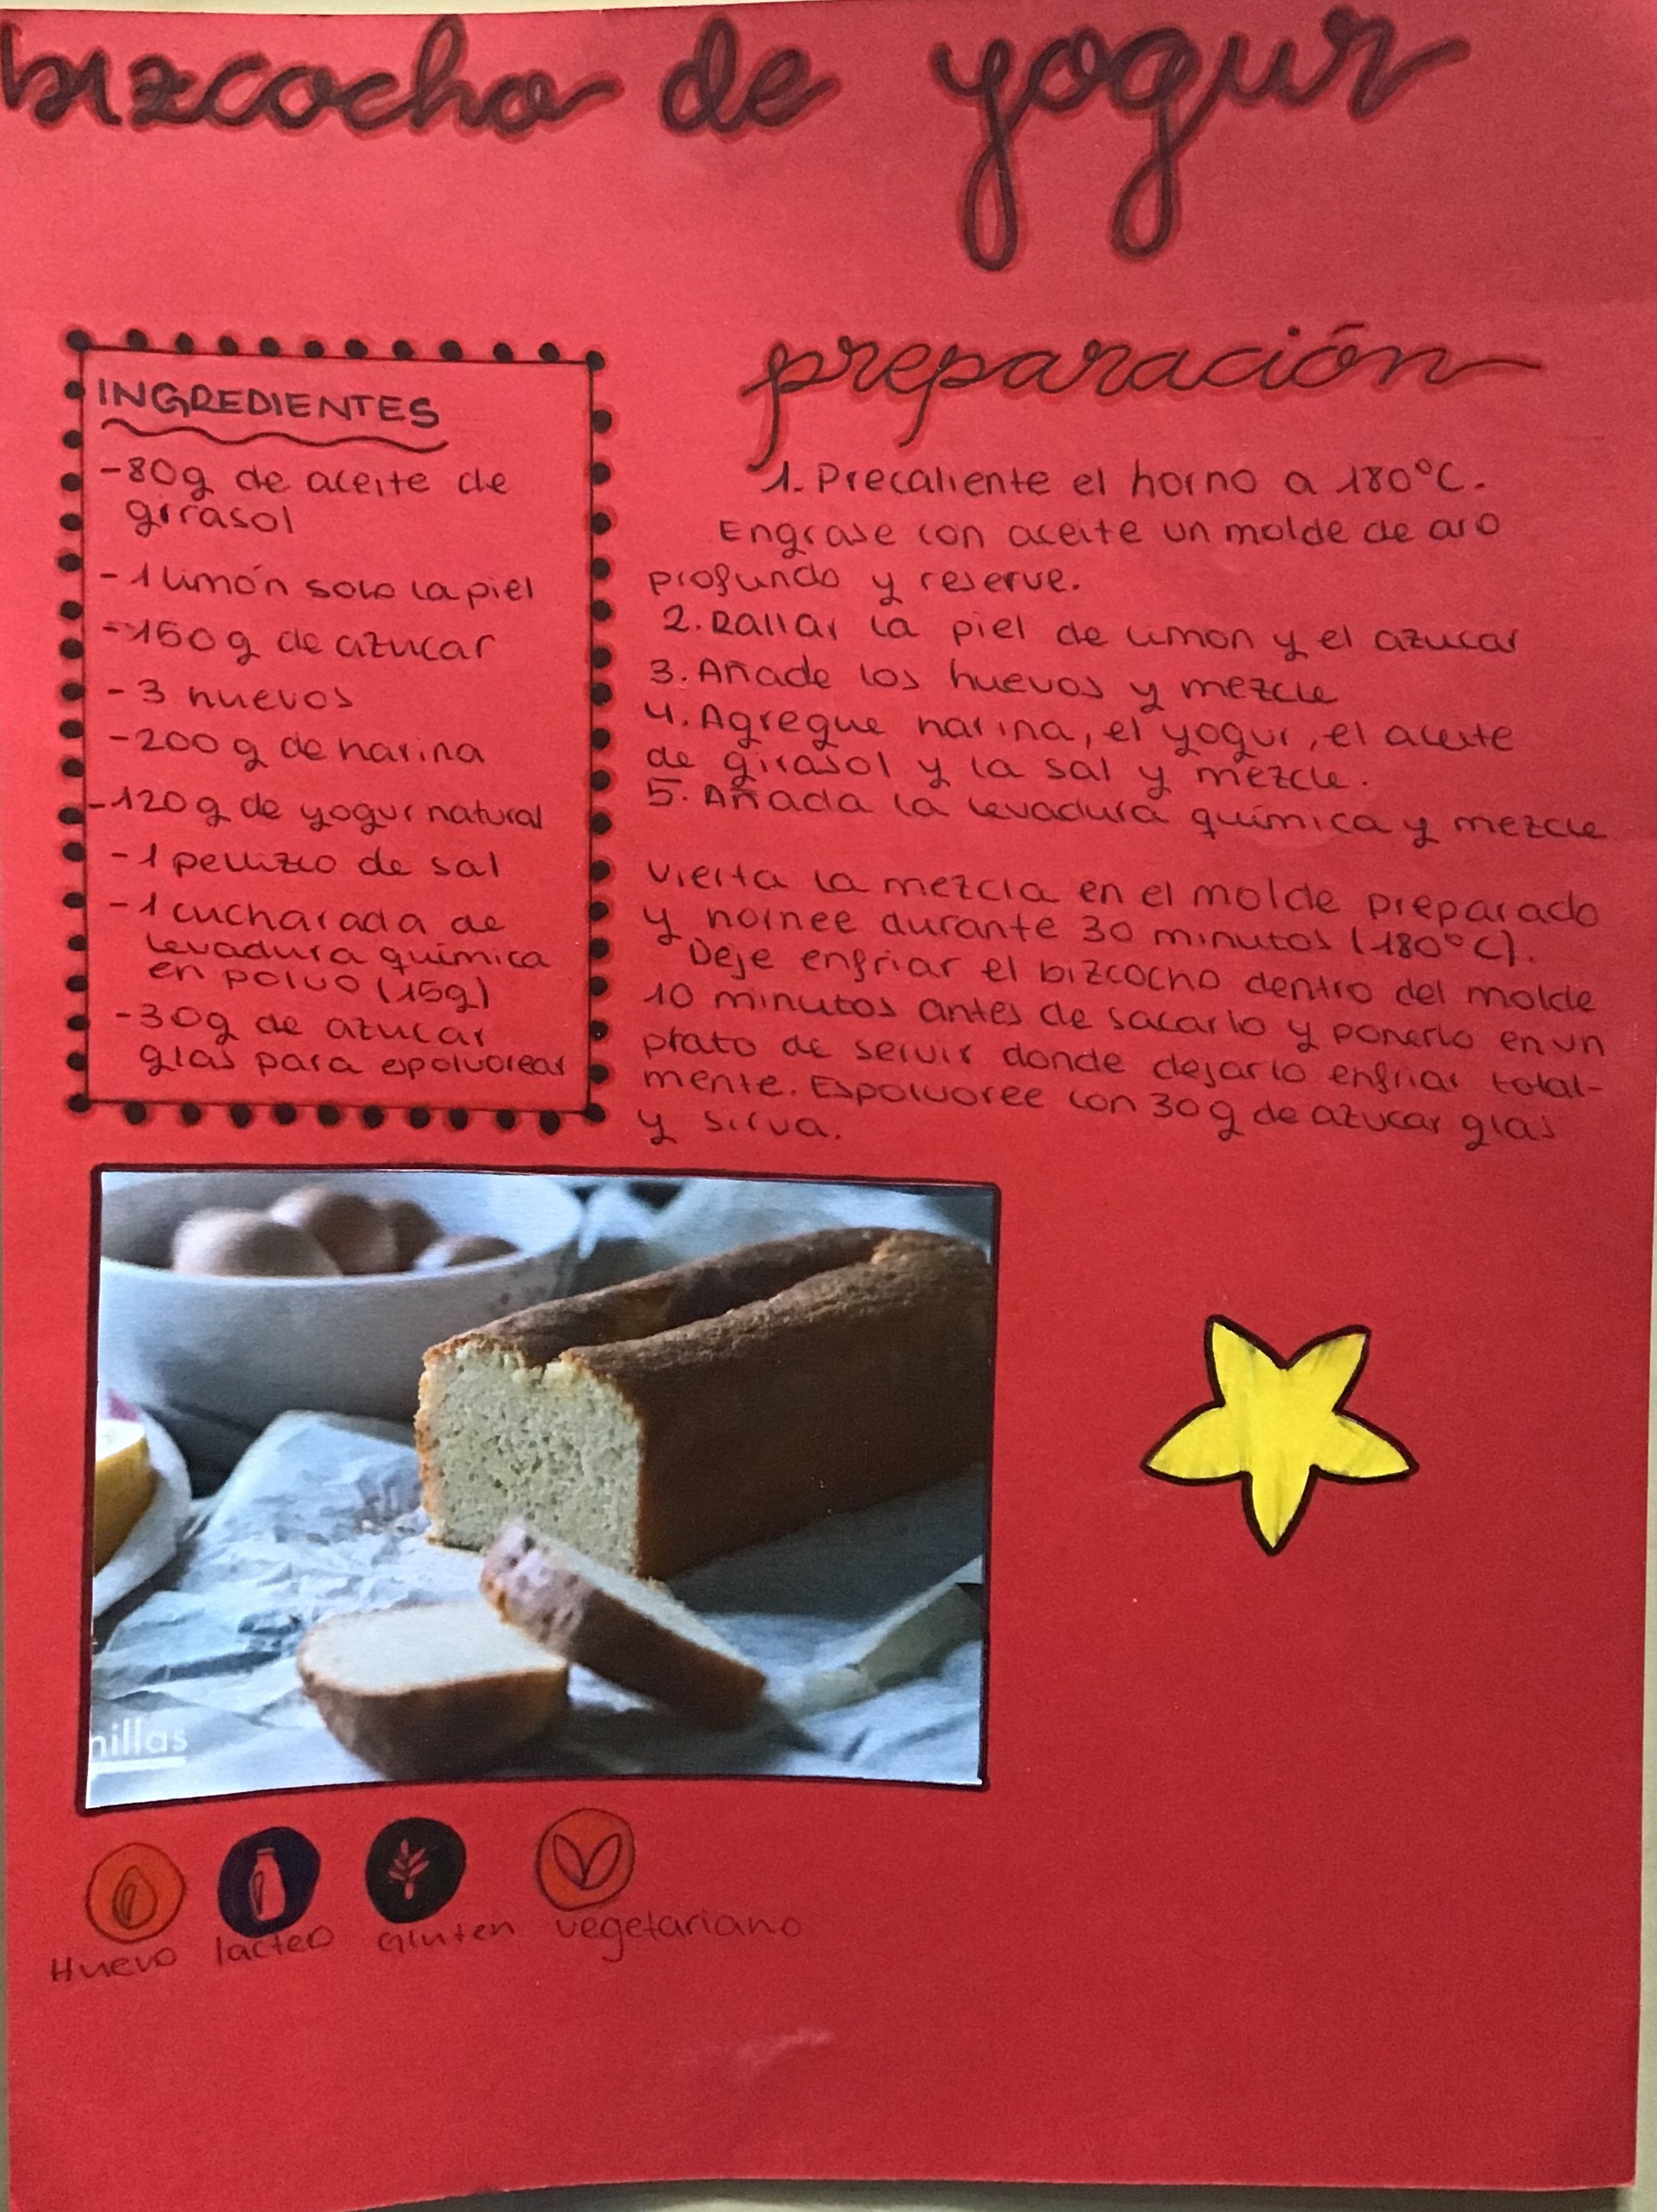 bizcocho de yogur
INGREDIENTES
-80g de aceite de
girasol
-1 limón solo la piel
-150g de azucar
-3 huevos
-200g de harina
-120g de yogur natural
-1 pellizco de sal
-1 cucharada de
levadura química
en polvo (15g)
-30g de azucar
glas para espolvorear
preparación
1. Precaliente el horno a 180°C.
Engrase con aceite un molde de aro
profundo y reserve.
2. Rallar la piel de limon y el azucar
3. Añade los huevos y mezcle
4. Agregue harina, el yogur, el aceite
de girasol y la sal y mezcle.
5. Añada la levadura química y mezcle
vierta la mezcla en el molde preparado
y hornee durante 30 minutos (180°C).
Deje enfriar el bizcocho dentro del molde
10 minutos antes de sacarlo y ponerlo en un
plato de servir donde dejarlo enfriar total-
mente. Espolvoree con 30g de azucar glas
y sirva.
nillas
Huevo lacteo Gluten vegetariano